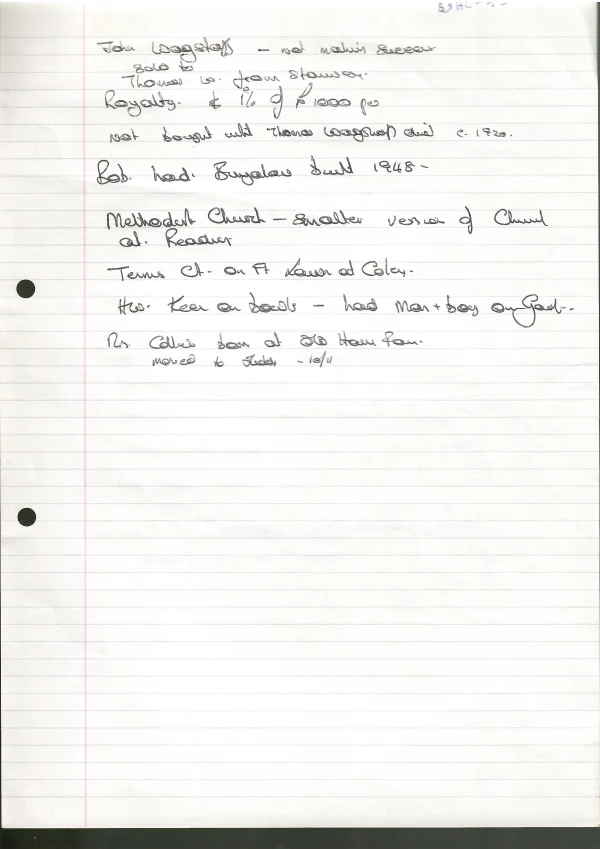 John Wagstaff - not makin success
sold to
Thomas W. from Stanwick.
Royalty. & 1% of £1000 per
not bought until Thomas Wagstaff died c. 1920.
Bob. had. Bungalow built 1948 -
Methodist Church - smaller version of Church
at.
Tennis Ct. on Ft at
Hw. Keen on bowls - had Man + boy on Gard-.
Mrs. Collis born at Old House Farm.
moved to - 10/11